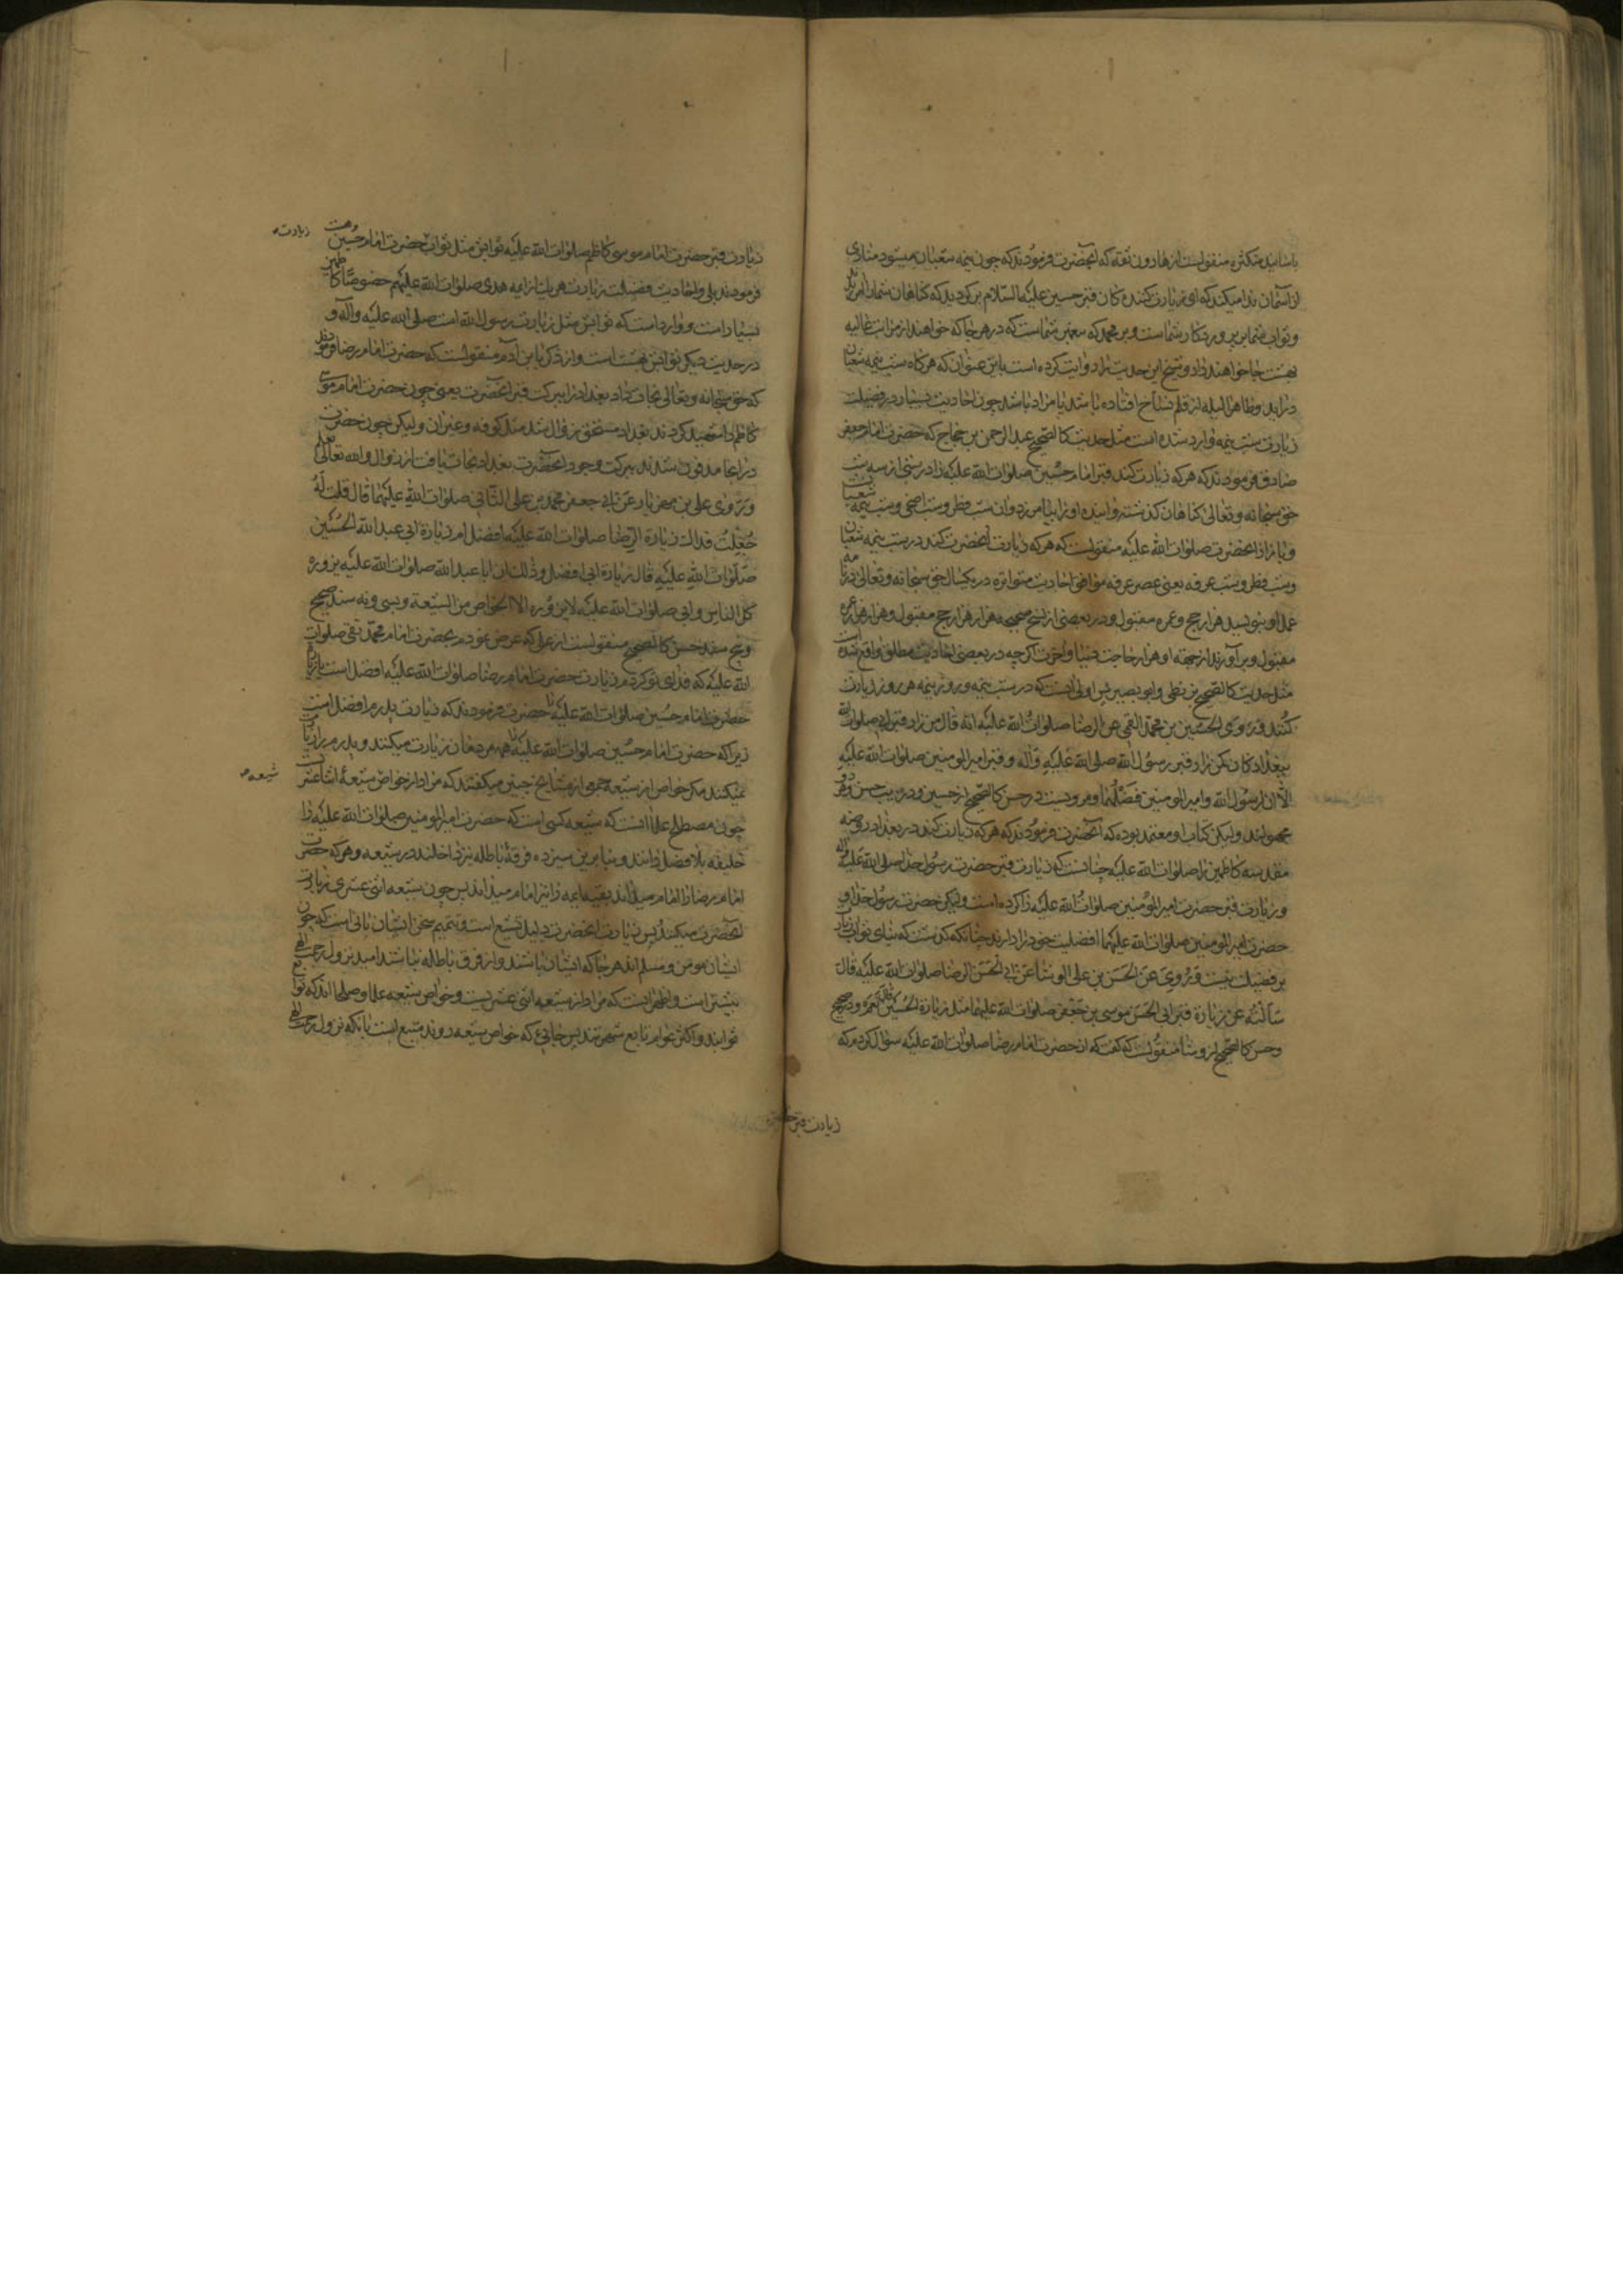 باسانید متکثره منقولست از هارون ثقه که آنحضرت فرمودند که چون نیمه شعبان میشود منادی
از آسمان ندا میکند که ای زیارت کنندگان قبر حسین علیه السلام برگردید که گناهان شما آمرزیده
وثواب شما بر پروردگار شماست وبر محمد که پیغمبر شماست که در هر جا که خواهند از مراتب عالیه
بهشت جا خواهند داد وشیخ این حدیث را روایت کرده است باین عنوان که هرگاه شب نیمه شعبان
درآید وظاهرا لیله از قلم نساخ افتاده باشد یا مراد باشد چون احادیث بسیار در فضیلت
زیارت شب نیمه وارد شده است مثل حدیث کالصحیح عبد الرحمن بن حجاج که حضرت امام جعفر
صادق فرمودند که هر که زیارت کند قبر امام حسین صلوات الله علیه را در شبی از سه شب
حق سبحانه وتعالی گناهان گذشته وآینده او را بیامرزد وآن شب فطر وشب اضحی وشب نیمه شعبان
وباز از آنحضرت صلوات الله علیه منقولست که هر که زیارت آنحضرت کند در شب نیمه شعبان
وشب فطر وشب عرفه یعنی عصر عرفه موافق احادیث متواتره در یکسال حق سبحانه وتعالی در نامه
عمل او بنویسد هزار حج وعمره مقبول ودر بعضی از نسخ صحیحه هزار هزار حج مقبول وهزار هزار عمره
مقبول وبرآورند از جهته او هزار حاجت دنیا وآخرت اگرچه در بعضی احادیث مطلق واقع شده است
مثل حدیث کالصحیح بزنطی وابو بصیر پس اولی آنست که در شب نیمه وروز نیمه هر روز زیارت
کنند وروی الحسین بن محمد القمی عن الرضا صلوات الله علیه انه قال من زار قبر ابی صلوات الله
ببغداد کان کمن زار قبر رسول الله صلی الله علیه وآله وقبر امیر المومنین صلوات الله علیه
الا ان لرسول الله وامیر المومنین فضلهما ومرویست در حسن کالصحیح از حسین ودر تهذیب حسن وهر دو
مجهولند ولیکن کتاب او معتمد بوده که آنحضرت فرمودند که هر که زیارت کند در بغداد روضه
مقدسه کاظمین را صلوات الله علیه چنانست که زیارت قبر حضرت رسول خدا صلی الله علیه وآله
وزیارت قبر حضرت امیر المؤمنین صلوات الله علیه را کرده است ولیکن حضرت رسول خدا و
حضرت امیر المومنین صلوات الله علیهما افضلیت خود را دارند چنانکه گذشت که بنای ثواب زیارت
بر فضیلت نیست وروی عن الحسن بن علی الوشا عن ابی الحسن الرضا صلوات الله علیه قال
سألته عن زیارة قبر ابی الحسن موسی بن جعفر صلوات الله علیهما مثل زیارة الحسین قال نعم ودر صحیح
وحسن کالصحیح از وشا منقولست که گفت که از حضرت امام رضا صلوات الله علیه سؤال کردم که
زیارت قبر حضرت
زیارت قبر حضرت امام موسی کاظم صلوات الله علیه ثوابش مثل ثواب حضرت امام حسین هست
زیارت
فرمودند بلی واحادیث فضیلت زیارت هر یک از ائمه هدی صلوات الله علیهم خصوصا کاظمین
بسیار است ووارد است که ثوابش مثل زیارت رسول الله است صلی الله علیه وآله و
در حدیث دیگر ثوابش بهشت است واز ذکریا بن آدم منقولست که حضرت امام رضا فرمودند
که حق سبحانه وتعالی نجات داد بغداد را ببرکت قبر آنحضرت یعنی چون حضرت امام موسی
کاظم را شهید کردند بغداد مستحق زوال شد مثل کوفه وغیر آن ولیکن چون حضرت
در آنجا مدفون شدند ببرکت وجود آنحضرت بغداد نجات یافت از زوال والله تعالی یعلم
وروی علی بن مهزیار عن ابی جعفر محمد بن علی الثانی صلوات الله علیهما قال قلت له
جعلت فداک زیارة الرضا صلوات الله علیه افضل ام زیارة ابی عبد الله الحسین
صلوات الله علیه قال زیارة ابی افضل وذلک ان ابا عبد الله صلوات الله علیه یزوره
کل الناس وابی صلوات الله علیه لا یزوره الا الخواص من الشیعة وبسی ونه سند صحیح
وپنج سند حسن کالصحیح منقولست از علی که عرض نمودم بحضرت امام محمد تقی صلوات
الله علیه که فدای تو گردم زیارت حضرت امام رضا صلوات الله علیه افضل است یا زیارت
حضرت امام حسین صلوات الله علیه حضرت فرمودند که زیارت پدرم افضل است
زیرا که حضرت امام حسین صلوات الله علیه را همه مردمان زیارت میکنند وپدرم را زیارت
نمیکنند مگر خواص از شیعه جمعی از مشایخ چنین میگفتند که مراد از خواص شیعهٔ اثنا عشر
شیعه
چون مصطلح علما آنست که شیعه کسی است که حضرت امیر المومنین صلوات الله علیه را
خلیفه بلا فصل دانند وبنابرین سیزده فرقهٔ باطله نیز داخلند در شیعه وهر که حضرت
امام رضا را امام میداند بقیه ائمه را نیز امام میداند پس چون شیعه اثنی عشری زیارت
آنحضرت میکنند پس زیارت آنحضرت دلیل تشیع است وتتمیم سخن ایشان بآنی است که چون
ایشان مومن ومسلم اند هر جا که ایشان باشند واز فرق باطله نباشند امید نزول رحمت الهی
بیشتر است واظهر آنست که مراد از شیعه اثنی عشریست وخواص شیعه علما وصلحا اند که توابع
توابند واکثر عوام تابع شهرتند پس جائی که خواص شیعه روند متبع است با آنکه نزول رحمت الهی